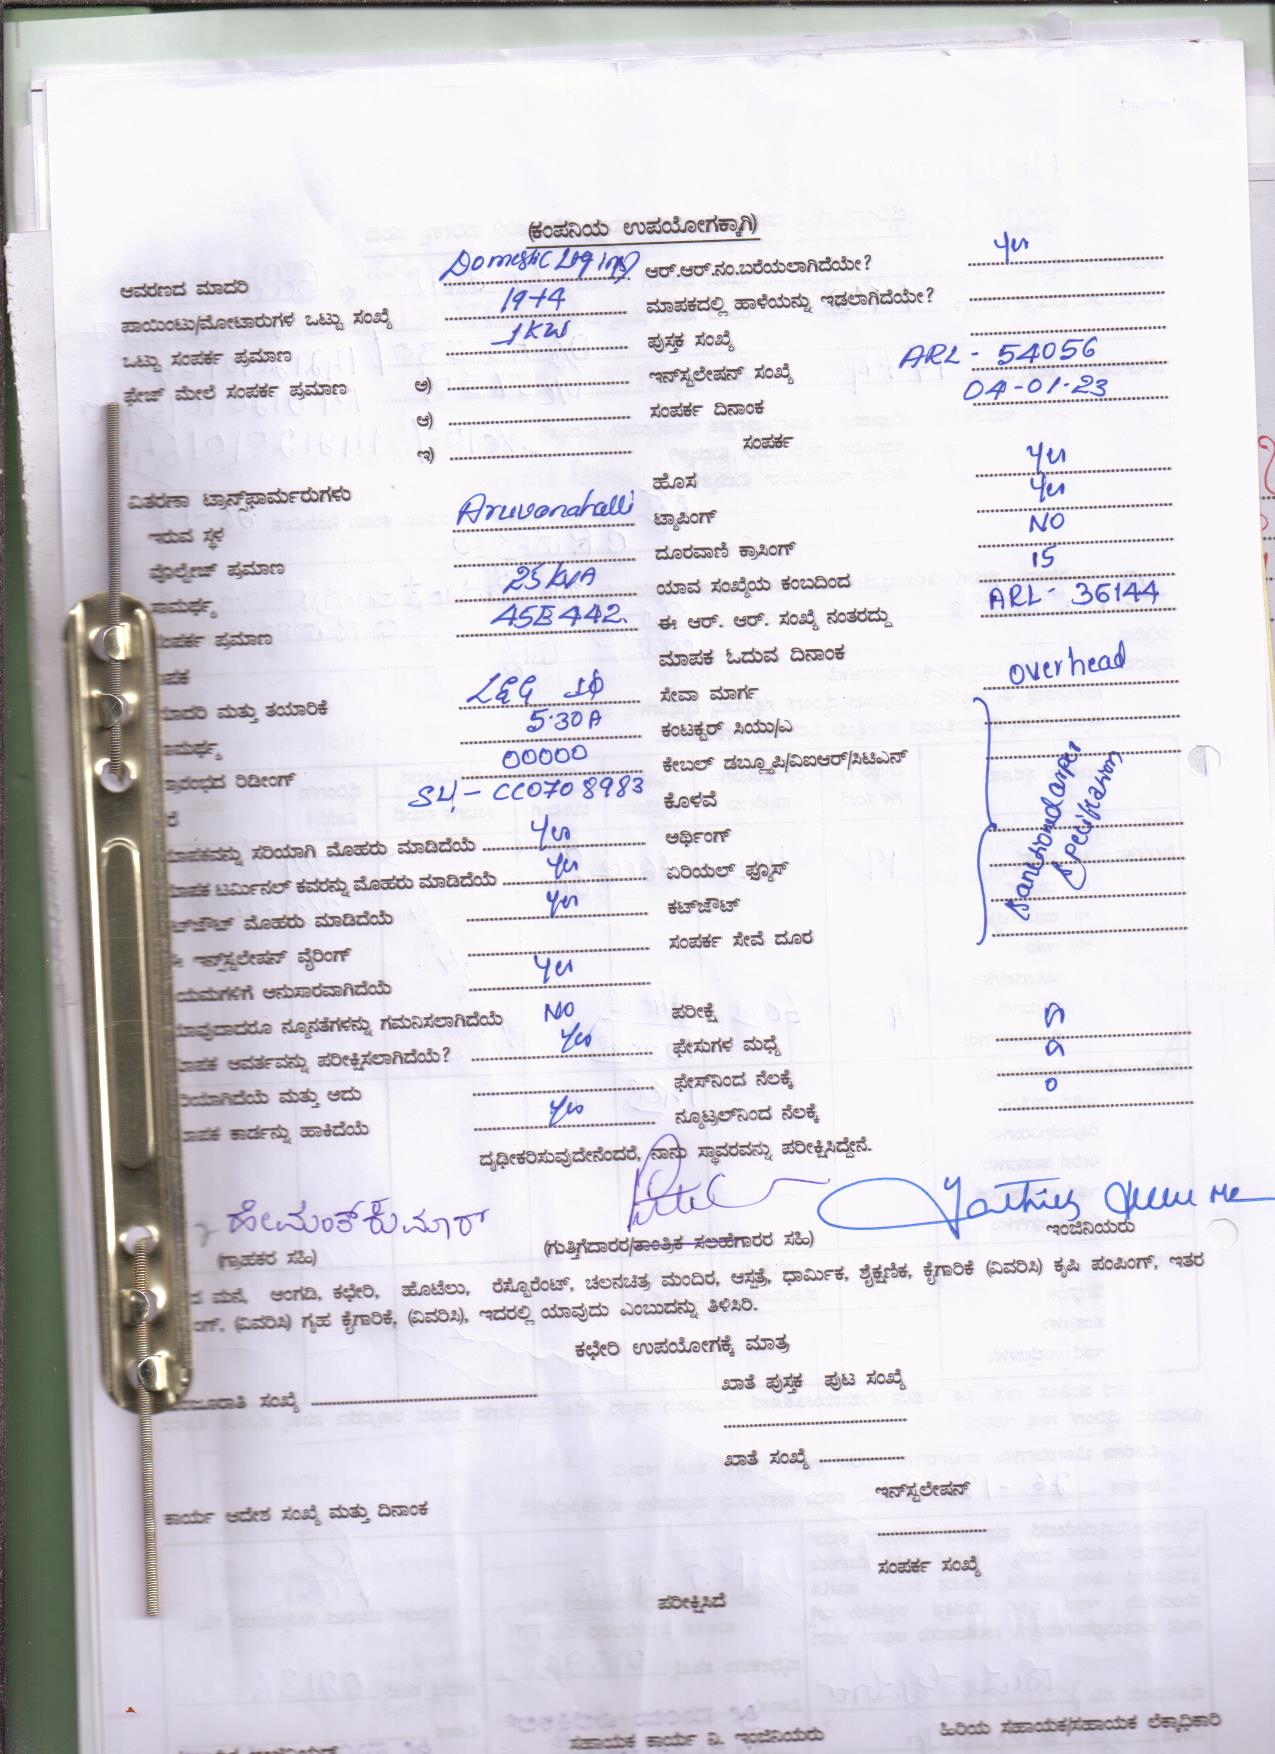 (ಕಂಪನಿಯ ಉಪಯೋಗಕ್ಕಾಗಿ)
ಆವರಣದ ಮಾದರಿ Domestic ಆರ್.ಆರ್.ನಂ.ಬರೆಯಲಾಗಿದೆಯೇ? Yes
ಪಾಯಿಂಟು/ಮೋಟಾರುಗಳ ಒಟ್ಟು ಸಂಖ್ಯೆ 19+4 ಮಾಪಕದಲ್ಲಿ ಹಾಳೆಯನ್ನು ಇಡಲಾಗಿದೆಯೇ?
ಒಟ್ಟು ಸಂಪರ್ಕ ಪ್ರಮಾಣ 1KW ಪುಸ್ತಕ ಸಂಖ್ಯೆ
ಫೇಜ್ ಮೇಲೆ ಸಂಪರ್ಕ ಪ್ರಮಾಣ ಅ) ಇನ್‌ಸ್ಟಲೇಷನ್ ಸಂಖ್ಯೆ ARL - 54056
ಆ) ಸಂಪರ್ಕ ದಿನಾಂಕ 04-01-23
ಇ) ಸಂಪರ್ಕ
ವಿತರಣಾ ಟ್ರಾನ್ಸ್‌ಫಾರ್ಮರುಗಳು ಹೊಸ Yes
ಇರುವ ಸ್ಥಳ Aruvanahalli ಟ್ಯಾಪಿಂಗ್ Yes
ವೋಲ್ಟೇಜ್ ಪ್ರಮಾಣ ದೂರವಾಣಿ ಕ್ರಾಸಿಂಗ್ NO
ಸಾಮರ್ಥ್ಯ 25 KVA ಯಾವ ಸಂಖ್ಯೆಯ ಕಂಬದಿಂದ 15
ಸಂಪರ್ಕ ಪ್ರಮಾಣ 45E442. ಈ ಆರ್. ಆರ್. ಸಂಖ್ಯೆ ನಂತರದ್ದು ARL - 36144
ಪಕ ಮಾಪಕ ಓದುವ ದಿನಾಂಕ
ಮಾದರಿ ಮತ್ತು ತಯಾರಿಕೆ L&G 1Φ ಸೇವಾ ಮಾರ್ಗ overhead
ಸಾಮರ್ಥ್ಯ 5-30A ಕಂಟಕ್ಟರ್ ಸಿಯು/ಎ
ಪ್ರಾರಂಭದ ರಿಡೀಂಗ್ 00000 ಕೇಬಲ್ ಡಬ್ಲ್ಯೂಪಿ/ವಿಐಆರ್/ಸಿಟಿಎನ್
ರೆ CC0708983 ಕೊಳವೆ
ಮಾಪಕವನ್ನು ಸರಿಯಾಗಿ ಮೊಹರು ಮಾಡಿದೆಯೆ Yes ಅರ್ಥಿಂಗ್
ಮಾಪಕ ಟರ್ಮಿನಲ್ ಕವರನ್ನು ಮೊಹರು ಮಾಡಿದೆಯೆ Yes ಏರಿಯಲ್ ಫ್ಯೂಸ್
ಕಟ್‌ಔಟ್ ಮೊಹರು ಮಾಡಿದೆಯೆ Yes ಕಟ್‌ಔಟ್
ಈ ಇನ್‌ಸ್ಟಲೇಷನ್ ವೈರಿಂಗ್ ಸಂಪರ್ಕ ಸೇವೆ ದೂರ
ಯಮಗಳಿಗೆ ಅನುಸಾರವಾಗಿದೆಯೆ Yes
ಯಾವುದಾದರೂ ನ್ಯೂನತೆಗಳನ್ನು ಗಮನಿಸಲಾಗಿದೆಯೆ NO ಪರೀಕ್ಷೆ
ಮಾಪಕ ಆವರ್ತವನ್ನು ಪರೀಕ್ಷಿಸಲಾಗಿದೆಯೆ? Yes ಫೇಸುಗಳ ಮಧ್ಯೆ
ರಿಯಾಗಿದೆಯೆ ಮತ್ತು ಅದು ಫೇಸ್‌ನಿಂದ ನೆಲಕ್ಕೆ
ಮಾಪಕ ಕಾರ್ಡನ್ನು ಹಾಕಿದೆಯೆ Yes ನ್ಯೂಟ್ರಲ್‌ನಿಂದ ನೆಲಕ್ಕೆ 0
ದೃಢೀಕರಿಸುವುದೇನೆಂದರೆ, ನಾನು ಸ್ಥಾವರವನ್ನು ಪರೀಕ್ಷಿಸಿದ್ದೇನೆ.
ಹೇಮಂತ್ ಕುಮಾರ್
(ಗ್ರಾಹಕರ ಸಹಿ) (ಗುತ್ತಿಗೆದಾರರ/ತಾಂತ್ರಿಕ ಸಲಹೆಗಾರರ ಸಹಿ) ಇಂಜಿನಿಯರು
ದ ಮನೆ, ಅಂಗಡಿ, ಕಛೇರಿ, ಹೊಟೆಲು, ರೆಸ್ಟೊರೆಂಟ್, ಚಲನಚಿತ್ರ ಮಂದಿರ, ಆಸ್ಪತ್ರೆ, ಧಾರ್ಮಿಕ, ಶೈಕ್ಷಣಿಕ, ಕೈಗಾರಿಕೆ (ವಿವರಿಸಿ) ಕೃಷಿ ಪಂಪಿಂಗ್, ಇತರ
ಂಗ್, (ವಿವರಿಸಿ) ಗೃಹ ಕೈಗಾರಿಕೆ, (ವಿವರಿಸಿ), ಇದರಲ್ಲಿ ಯಾವುದು ಎಂಬುದನ್ನು ತಿಳಿಸಿರಿ.
ಕಛೇರಿ ಉಪಯೋಗಕ್ಕೆ ಮಾತ್ರ
ಮಂಜೂರಾತಿ ಸಂಖ್ಯೆ ಖಾತೆ ಪುಸ್ತಕ ಪುಟ ಸಂಖ್ಯೆ
ಖಾತೆ ಸಂಖ್ಯೆ
ಕಾರ್ಯ ಆದೇಶ ಸಂಖ್ಯೆ ಮತ್ತು ದಿನಾಂಕ ಇನ್‌ಸ್ಟಲೇಷನ್
ಸಂಪರ್ಕ ಸಂಖ್ಯೆ
ಪರೀಕ್ಷಿಸಿದೆ
ಸಹಾಯಕ ಕಾರ್ಯ ನಿ. ಇಂಜಿನಿಯರು ಹಿರಿಯ ಸಹಾಯಕ/ಸಹಾಯಕ ಲೆಕ್ಕಾಧಿಕಾರಿ